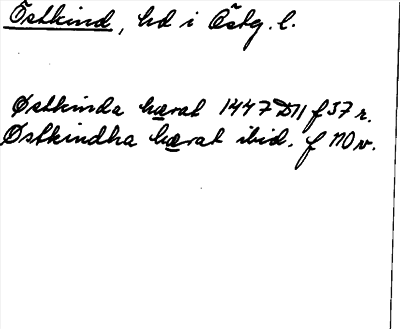 Östkind, hd i Östg. l.
Østkinda hærat 1447 D11 f 37 r.
Østkindha hærat ibid. f 110 v.